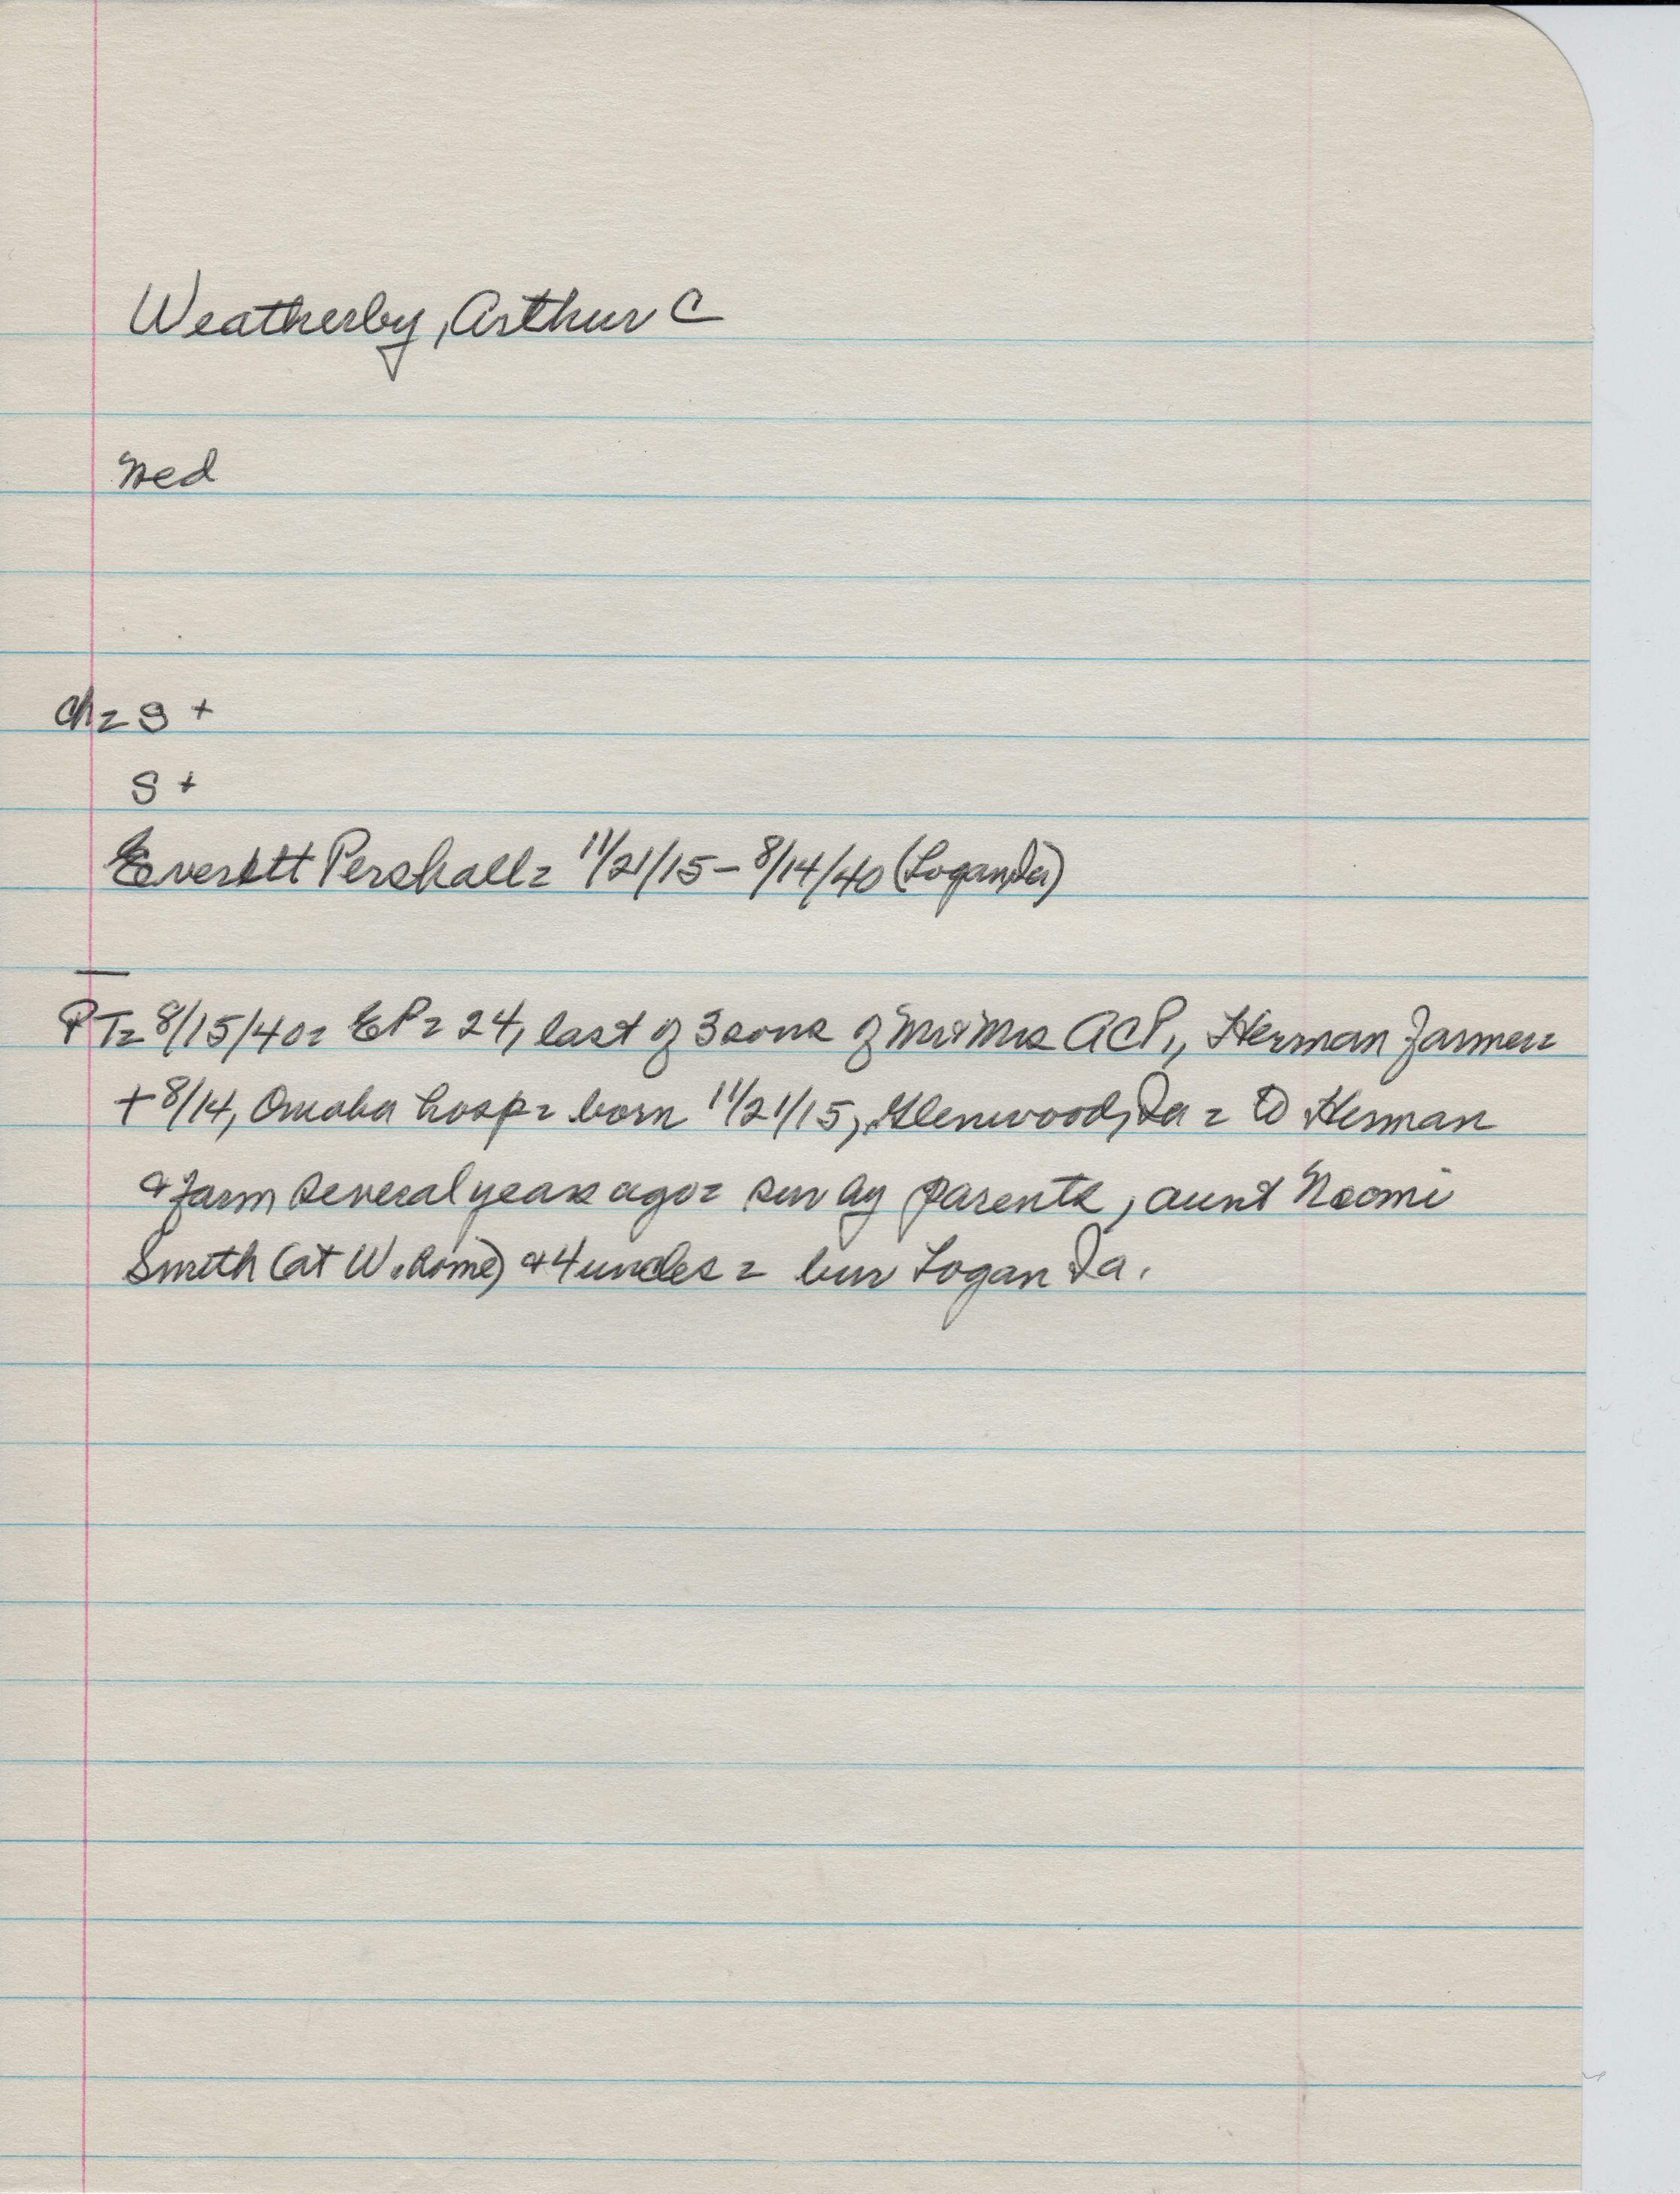 Weatherby, Arthur C
med
Ch = S +
S +
Everett Pershall = 11/21/15 - 8/14/40 (Logan, Ia)
PT = 8/15/40 = EP = 24, last of 3 sons of Mr & Mrs ACP., Herman farmer =
+ 8/14, Omaha hosp = born 11/21/15, Glenwood, Ia = to Herman
& farm several years ago = sur by parents, aunt Naomi
Smith (at W. home) & 4 uncles = bur Logan Ia.